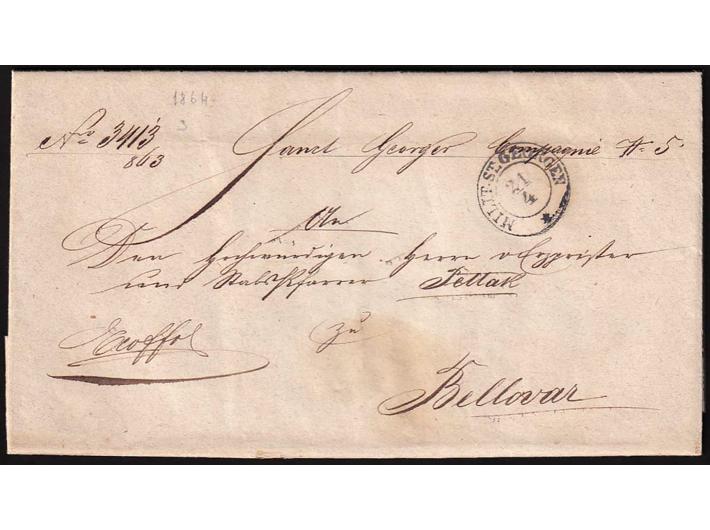 1864
3
No 3413
863
Sanct Georger Compagnie No 5
MILIT: ST. GEORGEN
21
4
An
Den Hochwürdigen Herrn
und Stabspfarrer Tettak
zu
Bellovar